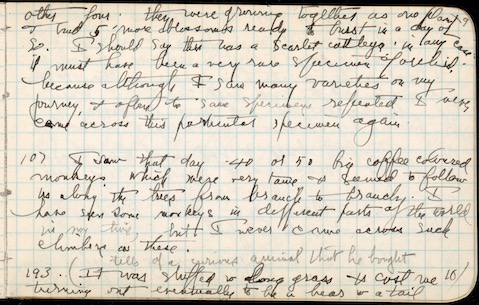 other four. They were growing together as one plant &
I had 5 more blossoms ready to burst in a day or
so. I should say this was a Scarlet cattleya in any case
it must have been a very rare specimen of orchid,
because although I saw many varieties on my
journey, & often the same specimens repeated I never
came across this particular specimen again.
107 I saw that day 40 or 50 big coffee coloured
monkeys which were very tame & seemed to follow
us along the trees from branch to branch. I
have seen some monkeys in different parts of the world
in my time, but I never came across such
climbers as these.
tells of a curious animal that he bought
193. (It was stuffed w long grass & cost me 10/)
turning out eventually to be a bear w a tail